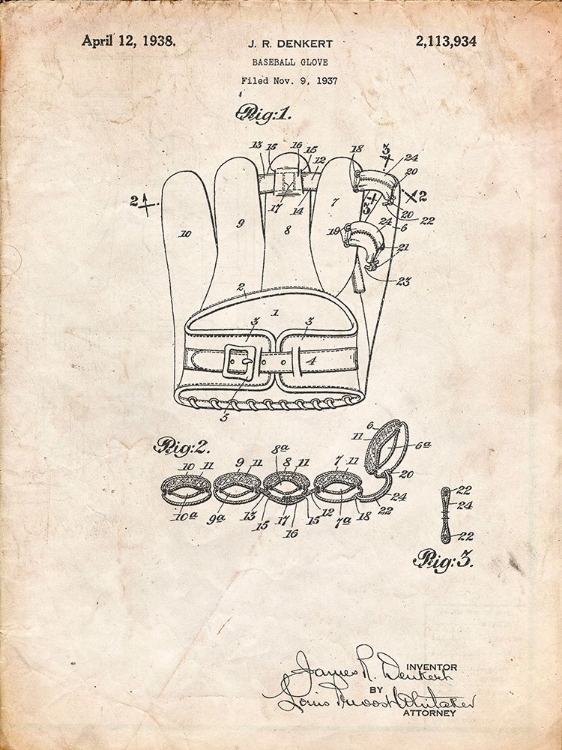 April 12, 1938. J. R. DENKERT 2,113,934
BASEBALL GLOVE
Filed Nov. 9, 1937
Fig:1.
13 15 16 15 12 18 3 24
20
2 2
17 14 7 3 20 22
24 6
19
10 9 8 21
23
2
1
3 3
4
5
Fig:2.
6
11 6a
8a
10 11 9 11 8 11 7 11
20
24
10a 9a 13 15 17 16 15 12 7a 18 22
22
24
22
Fig:3.
James R. Denkert INVENTOR
BY
Louis Prevost Whitaker
ATTORNEY